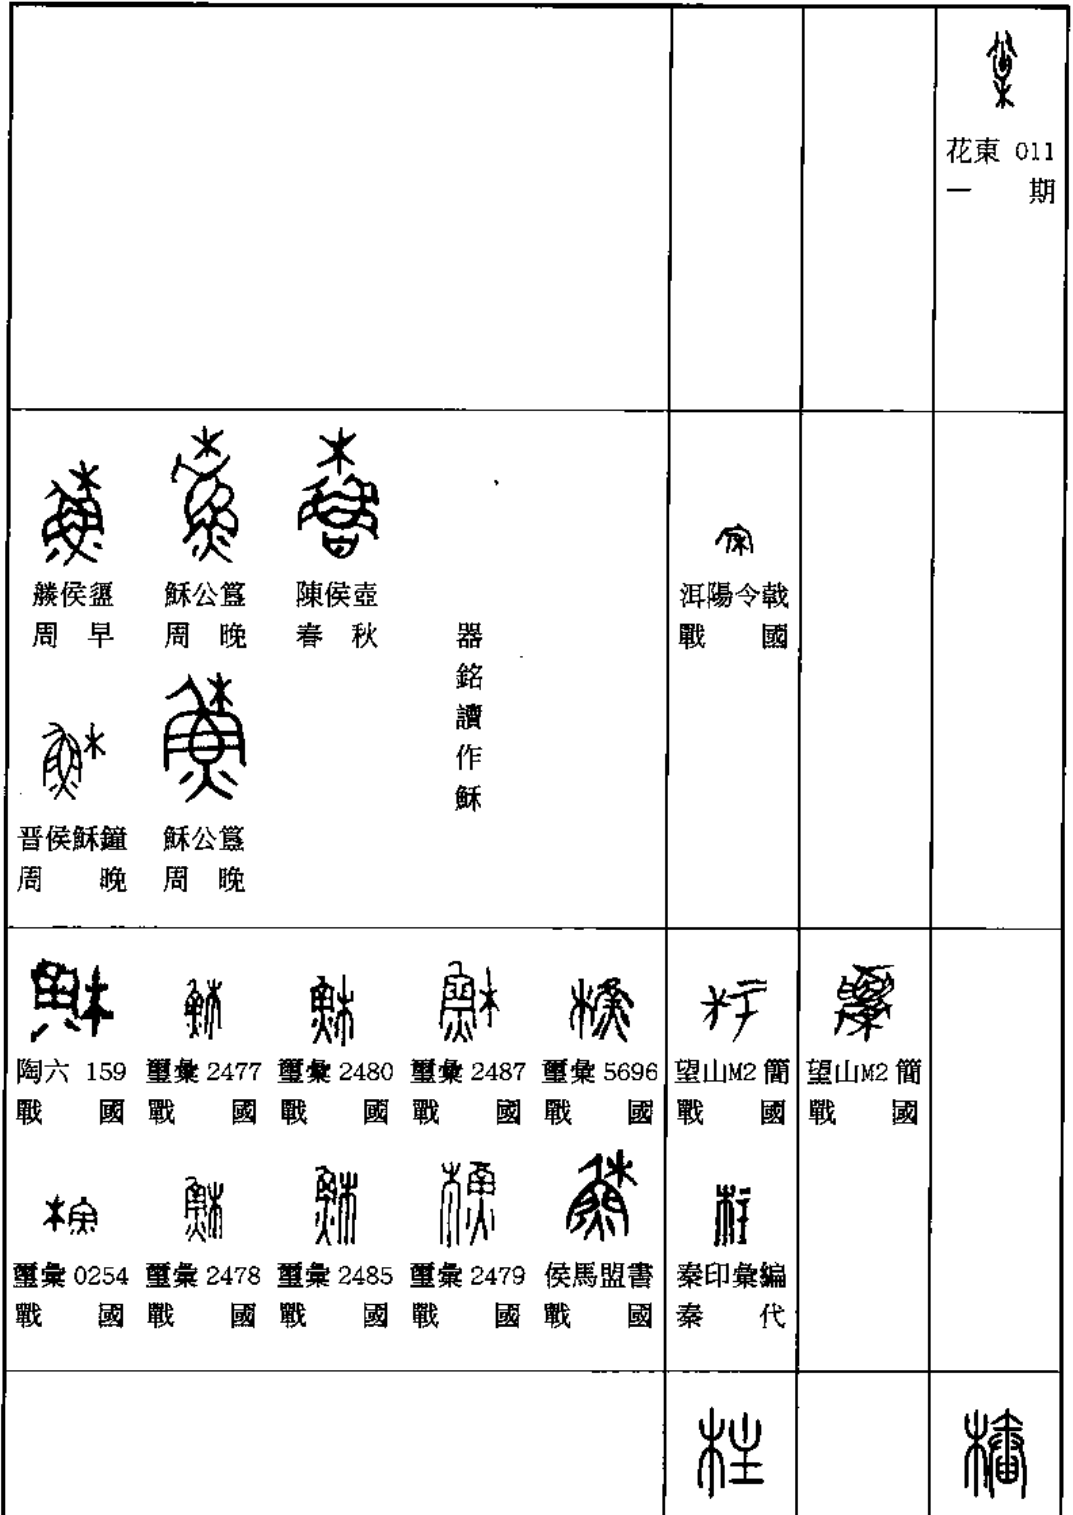 花東 011
一期
䲢侯盨
周早
穌公簋
周晚
陳侯壺
春秋
器銘讀作穌
洱陽令戟
戰國
晋侯穌鐘
周晚
穌公簋
周晚
陶六 159
戰國
璽彙 2477
戰國
璽彙 2480
戰國
璽彙 2487
戰國
璽彙 5696
戰國
望山M2 簡
戰國
望山M2 簡
戰國
璽彙 0254
戰國
璽彙 2478
戰國
璽彙 2485
戰國
璽彙 2479
戰國
侯馬盟書
戰國
秦印彙編
秦代